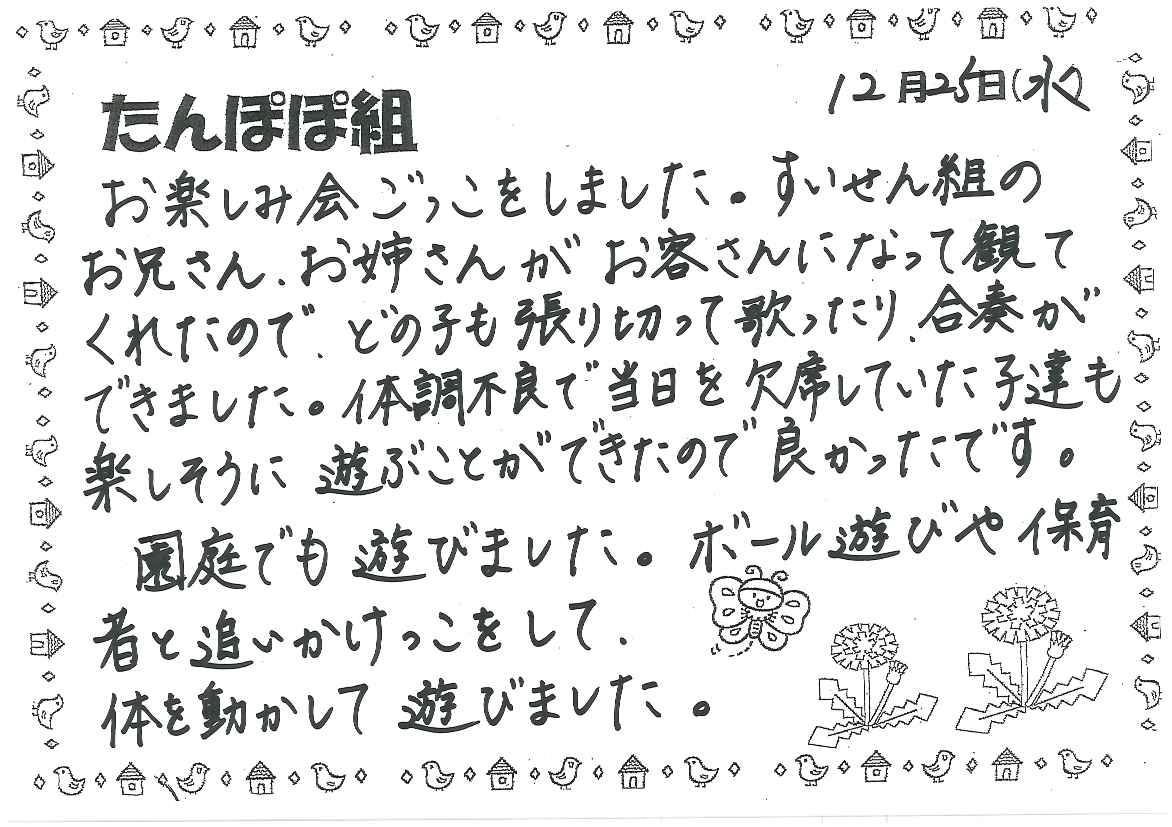 12月25日(水)
たんぽぽ組
お楽しみ会ごっこをしました。すいせん組の
お兄さん、お姉さんがお客さんになって観て
くれたので、どの子も張り切って歌ったり、合奏が
できました。体調不良で当日を欠席していた子達も
楽しそうに遊ぶことができたので良かったです。
園庭でも遊びました。ボール遊びや保育
者と追いかけっこをして、
体を動かして遊びました。